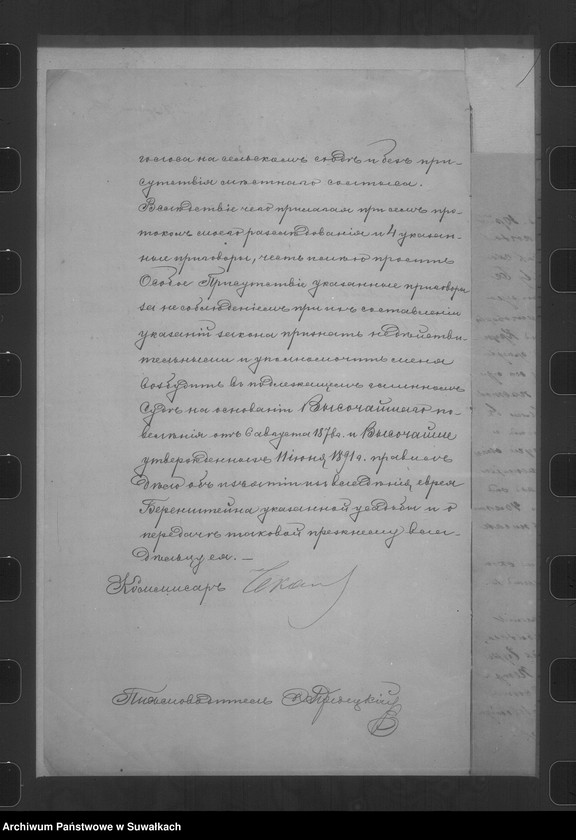 голоса на сельскомъ сходѣ и безъ при-
сутствія мѣстнаго солтыса.
Вслѣдствіе чего прилагая при семъ про-
токолъ моего разслѣдованія и 4 указан-
ные приговоры, честь имѣю просить
Особое Присутствіе указанные приговоры
за несоблюденіемъ при ихъ составленіи
указаній закона признать недѣйстви-
тельными и уполномочить меня
возбудить въ подлежащемъ гминномъ
судѣ на основаніи Высочайшаго по-
велѣнія отъ 6 августа 1876 г. и Высочайше
утвержденныхъ 11 іюня 1891 г. правилъ
дѣло объ изъятіи изъ владѣнія еврея
Беренштейна указанной усадьбы и о
передачѣ таковой прежнему вла-
дѣльцу ея. —
Коммисаръ
Письмоводитель
Archiwum Państwowe w Suwałkach